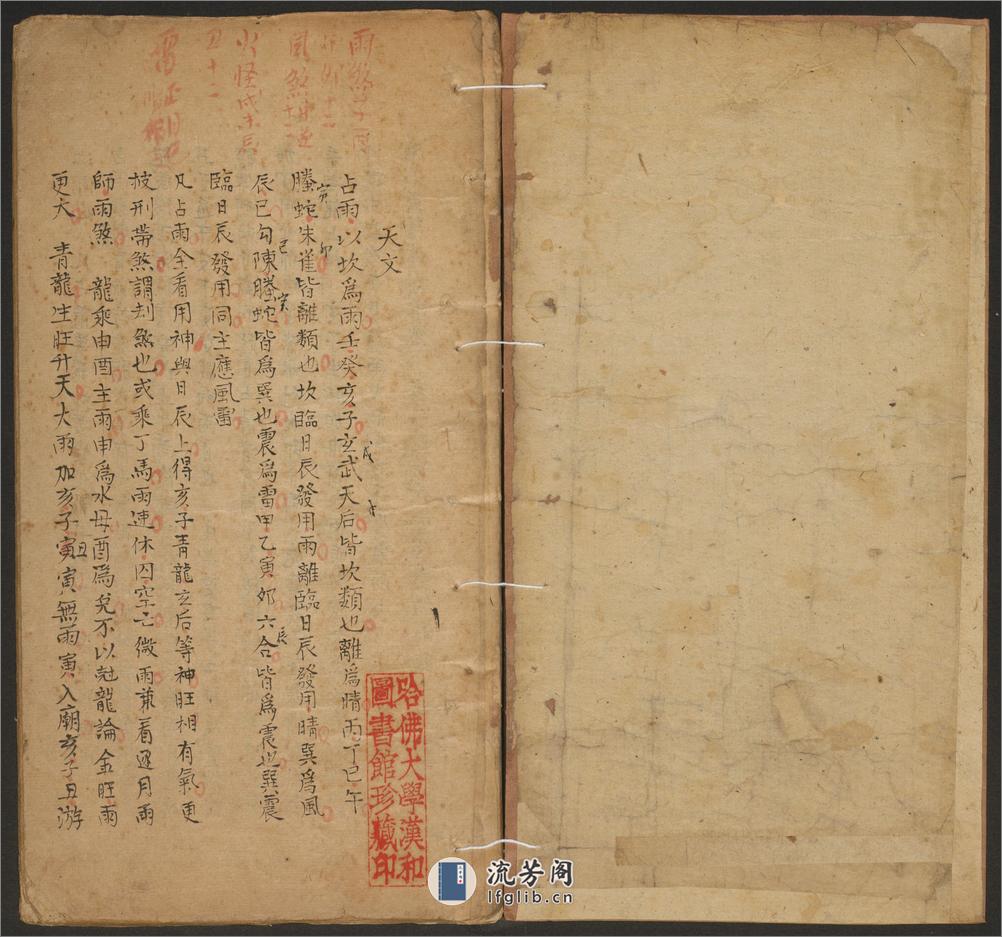 雨煞子一月
卯卯十二
風煞
火怪戌未辰
丑十二
雷
天文
占雨以坎為雨壬癸亥子玄武天后皆坎類也離為晴丙丁巳午
螣蛇朱雀皆離類也坎臨日辰發用雨離臨日辰發用晴巽為風
辰巳勾陳螣蛇皆為巽也震為雷甲乙寅卯六合皆為震也巽震
臨日辰發用同主應風雷
凡占雨全看用神與日辰上得亥子青龍玄后等神旺相有氣更
披刑帶煞謂刦煞也或乘丁馬雨速休囚空亡微雨兼看逐月雨
師雨煞　龍乘申酉主雨申為水母酉為兌不以尅龍論金旺雨
更大　青龍生旺升天大雨加亥子寅丑寅無雨寅入廟亥子丑游
戌
亥
寅
卯
巳
寅
辰
哈佛大學漢和
圖書館珍藏印
流芳阁
lfglib.cn